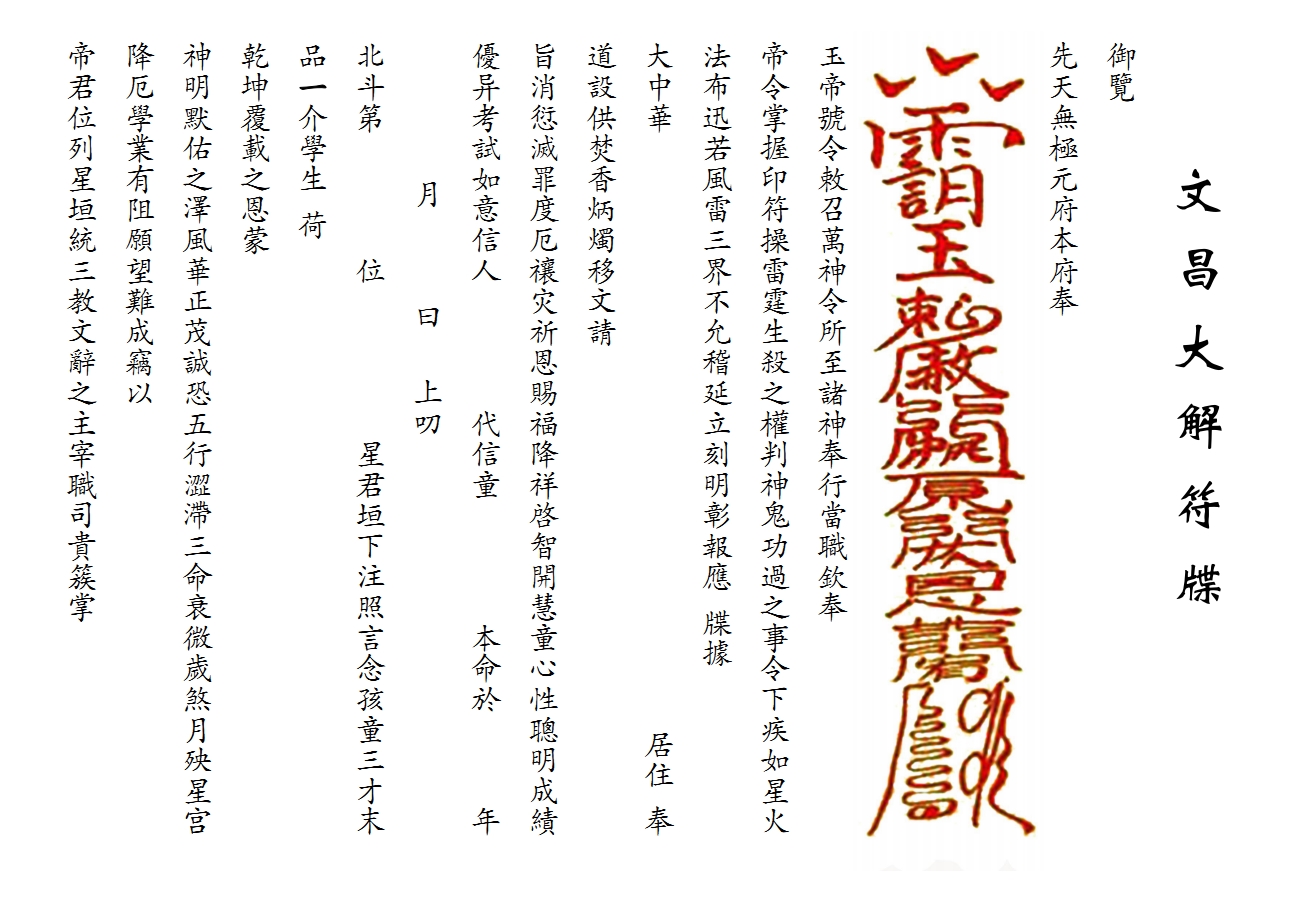 文昌大解符牒
御覽
先天無極元府本府奉
玉帝號令敕召萬神令所至諸神奉行當職欽奉
帝令掌握印符操雷霆生殺之權判神鬼功過之事令下疾如星火
法布迅若風雷三界不允稽延立刻明彰報應 牒據
大中華 居住 奉
道設供焚香炳燭移文請
旨消愆滅罪度厄禳灾祈恩賜福降祥啓智開慧童心性聰明成績
優异考試如意信人 代信童 本命於 年
月 日 上叨
北斗第 位 星君垣下注照言念孩童三才末
品一介學生 荷
乾坤覆載之恩蒙
神明默佑之澤風華正茂誠恐五行澀滯三命衰微歲煞月殃星宮
降厄學業有阻願望難成竊以
帝君位列星垣統三教文辭之主宰職司貴簇掌